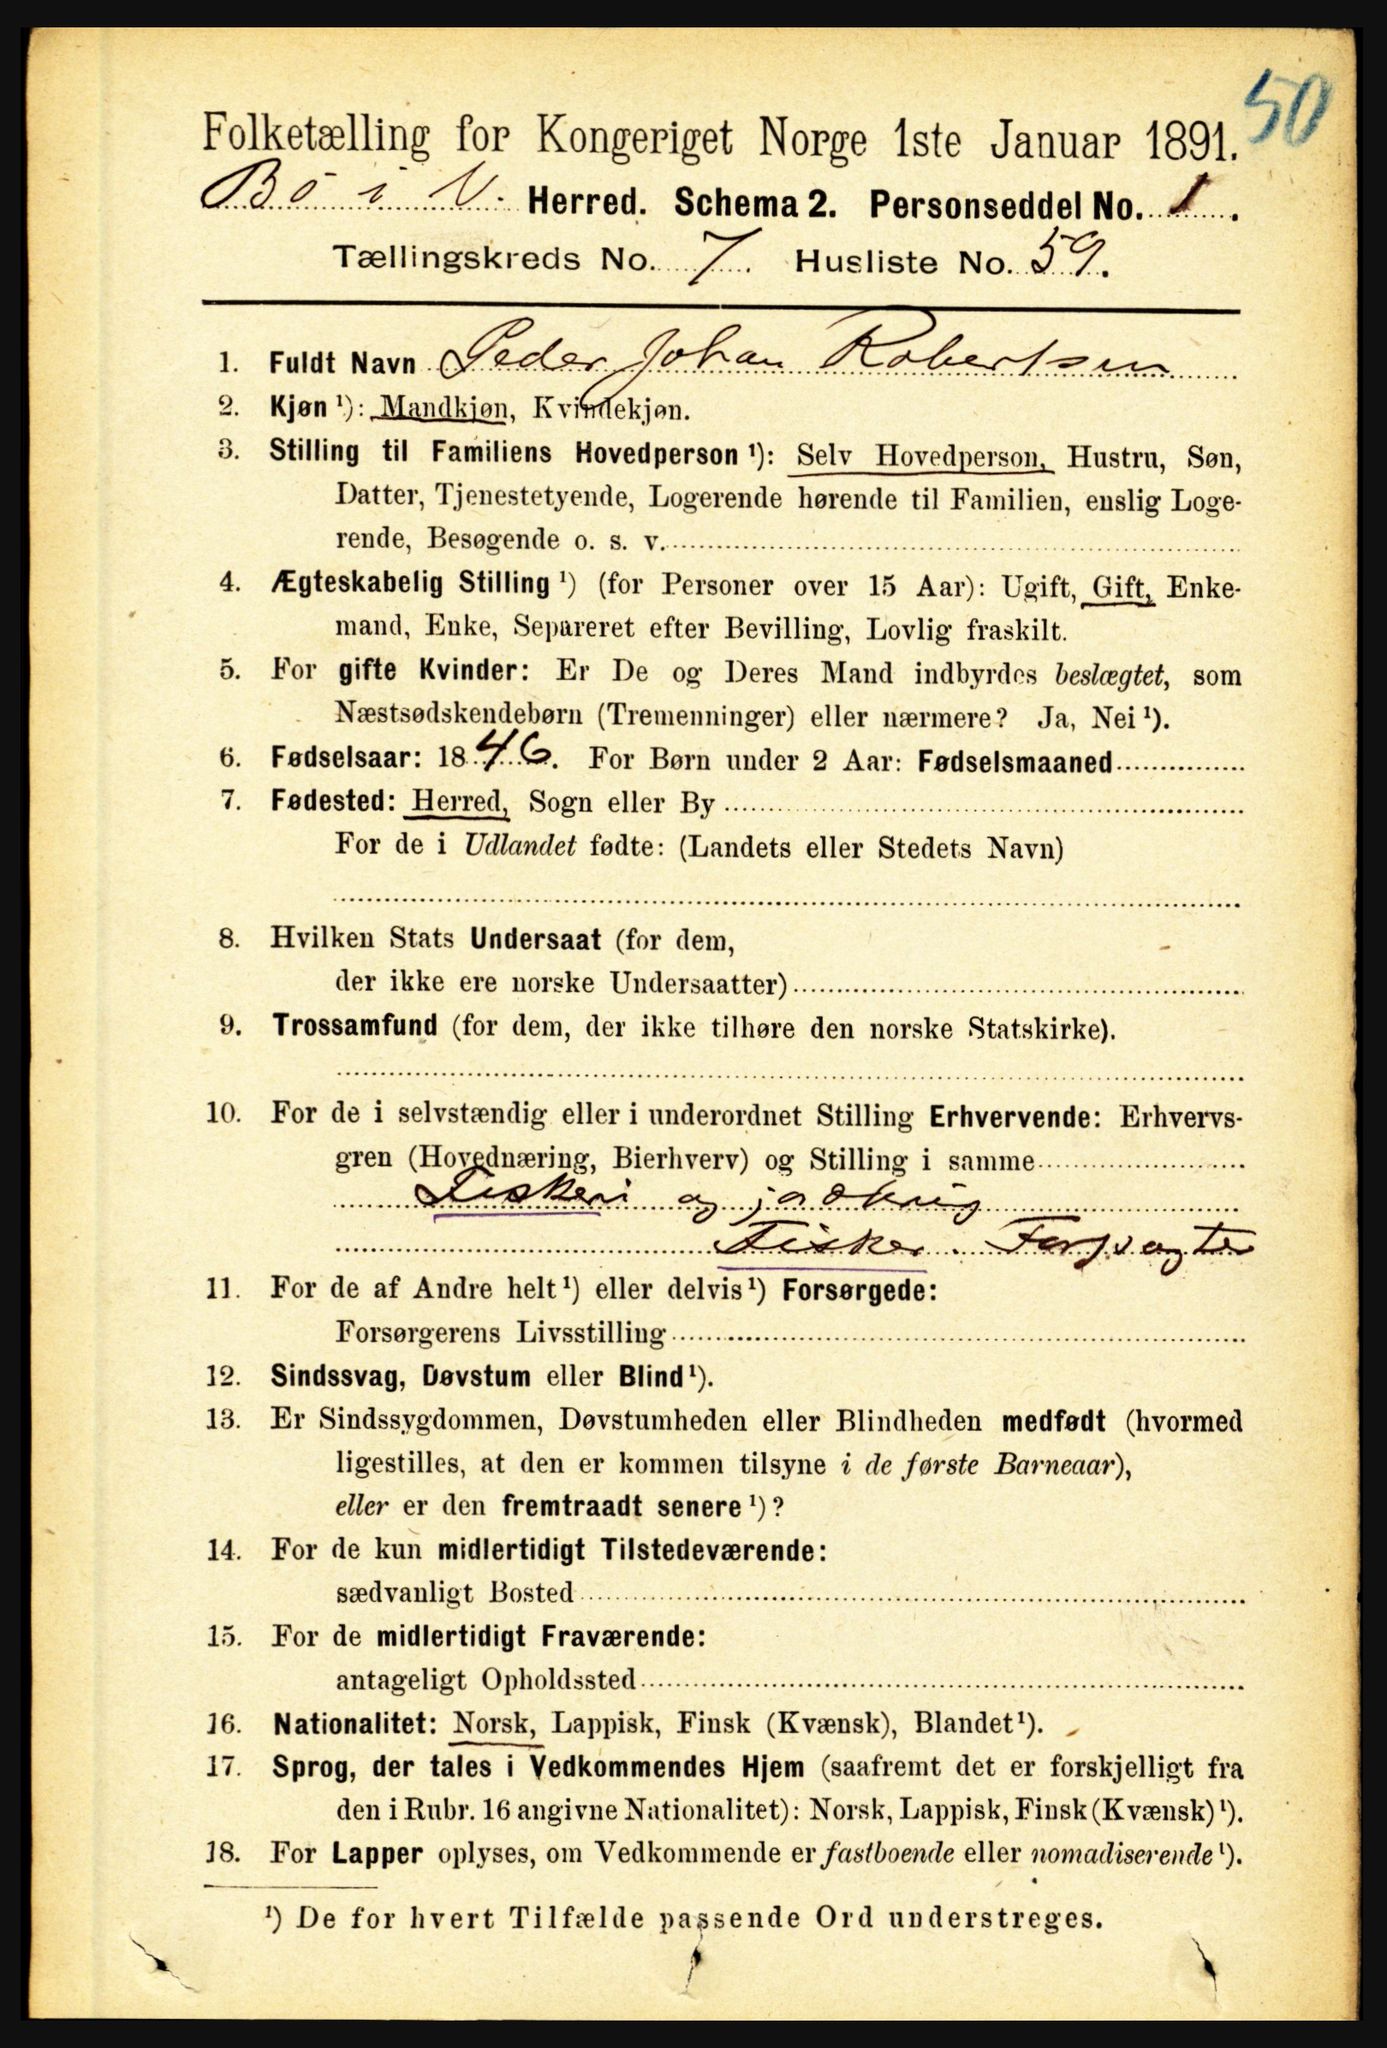 50
Folketælling for Kongeriget Norge 1ste Januar 1891.
Bö i V. Herred. Schema 2. Personseddel No. 1.
Tællingskreds No. 7. Husliste No. 59.
1. Fuldt Navn Peder Johan Robertsen
2. Kjøn ¹): Mandkjøn, Kvindekjøn.
3. Stilling til Familiens Hovedperson ¹): Selv Hovedperson, Hustru, Søn,
Datter, Tjenestetyende, Logerende hørende til Familien, enslig Loge-
rende, Besøgende o. s. v.
4. Ægteskabelig Stilling ¹) (for Personer over 15 Aar): Ugift, Gift, Enke-
mand, Enke, Separeret efter Bevilling, Lovlig fraskilt.
5. For gifte Kvinder: Er De og Deres Mand indbyrdes beslægtet, som
Næstsødskendebørn (Tremenninger) eller nærmere? Ja, Nei ¹).
6. Fødselsaar: 1846. For Børn under 2 Aar: Fødselsmaaned
7. Fødested: Herred, Sogn eller By
For de i Udlandet fødte: (Landets eller Stedets Navn)
8. Hvilken Stats Undersaat (for dem,
der ikke ere norske Undersaatter)
9. Trossamfund (for dem, der ikke tilhøre den norske Statskirke).
10. For de i selvstændig eller i underordnet Stilling Erhvervende: Erhvervs-
gren (Hovednæring, Bierhverv) og Stilling i samme
Fiskeri og jordbrug
Fisker. Forpagter
11. For de af Andre helt ¹) eller delvis ¹) Forsørgede:
Forsørgerens Livsstilling
12. Sindssvag, Døvstum eller Blind ¹).
13. Er Sindssygdommen, Døvstumheden eller Blindheden medfødt (hvormed
ligestilles, at den er kommen tilsyne i de første Barneaar),
eller er den fremtraadt senere ¹)?
14. For de kun midlertidigt Tilstedeværende:
sædvanligt Bosted
15. For de midlertidigt Fraværende:
antageligt Opholdssted
16. Nationalitet: Norsk, Lappisk, Finsk (Kvænsk), Blandet ¹).
17. Sprog, der tales i Vedkommendes Hjem (saafremt det er forskjelligt fra
den i Rubr. 16 angivne Nationalitet): Norsk, Lappisk, Finsk (Kvænsk) ¹).
18. For Lapper oplyses, om Vedkommende er fastboende eller nomadiserende ¹).
¹) De for hvert Tilfælde passende Ord understreges.